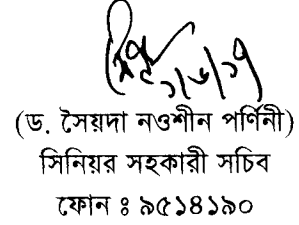 ১/৬/১৭
(ড. সৈয়দা নওশীন পর্ণিনী)
সিনিয়র সহকারী সচিব
ফোন ঃ ৯৫১৪১৯০